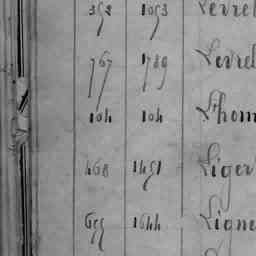 352 1053 Levrel
767 1789 Levrel
104 104 Lhom
468 1451 Liger
655 1644 Ligne